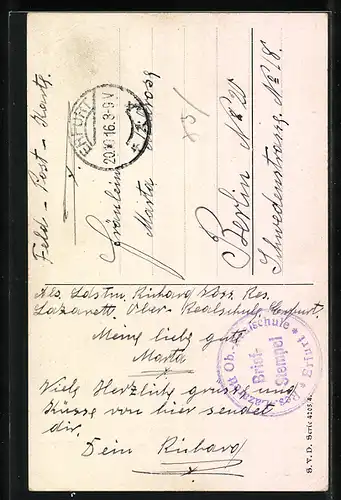 Feld - Post - Karte
ERFURT
20.10.16.8-9 V.
Fräulein
Marta
Berlin No 20
Schwedenstrasse No 18.
Abs. Ldstm. Richard Res.
Lazarett Ober-Realschule, Erfurt.
Meine liebe gute
Marta
Viele Herzliche grüsse und
Küsse von hier sendet
dir.
Dein Richard
Res. Lazarett Ob. Realschule * Erfurt *
Brief-
Stempel
S. V. D. Serie 4203/4.